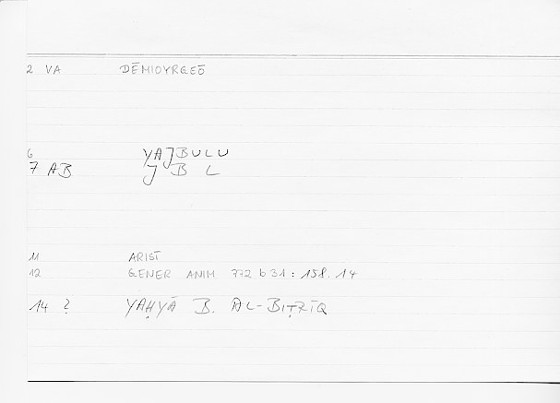 2 VA DĒMIOYRGEŌ
6 YAJBULU
7 AB J B L
11 ARIST
12 GENER ANIM 772 b 31 : 158.14
14 ? YAḤYĀ B. AL-BIṬRĪQ